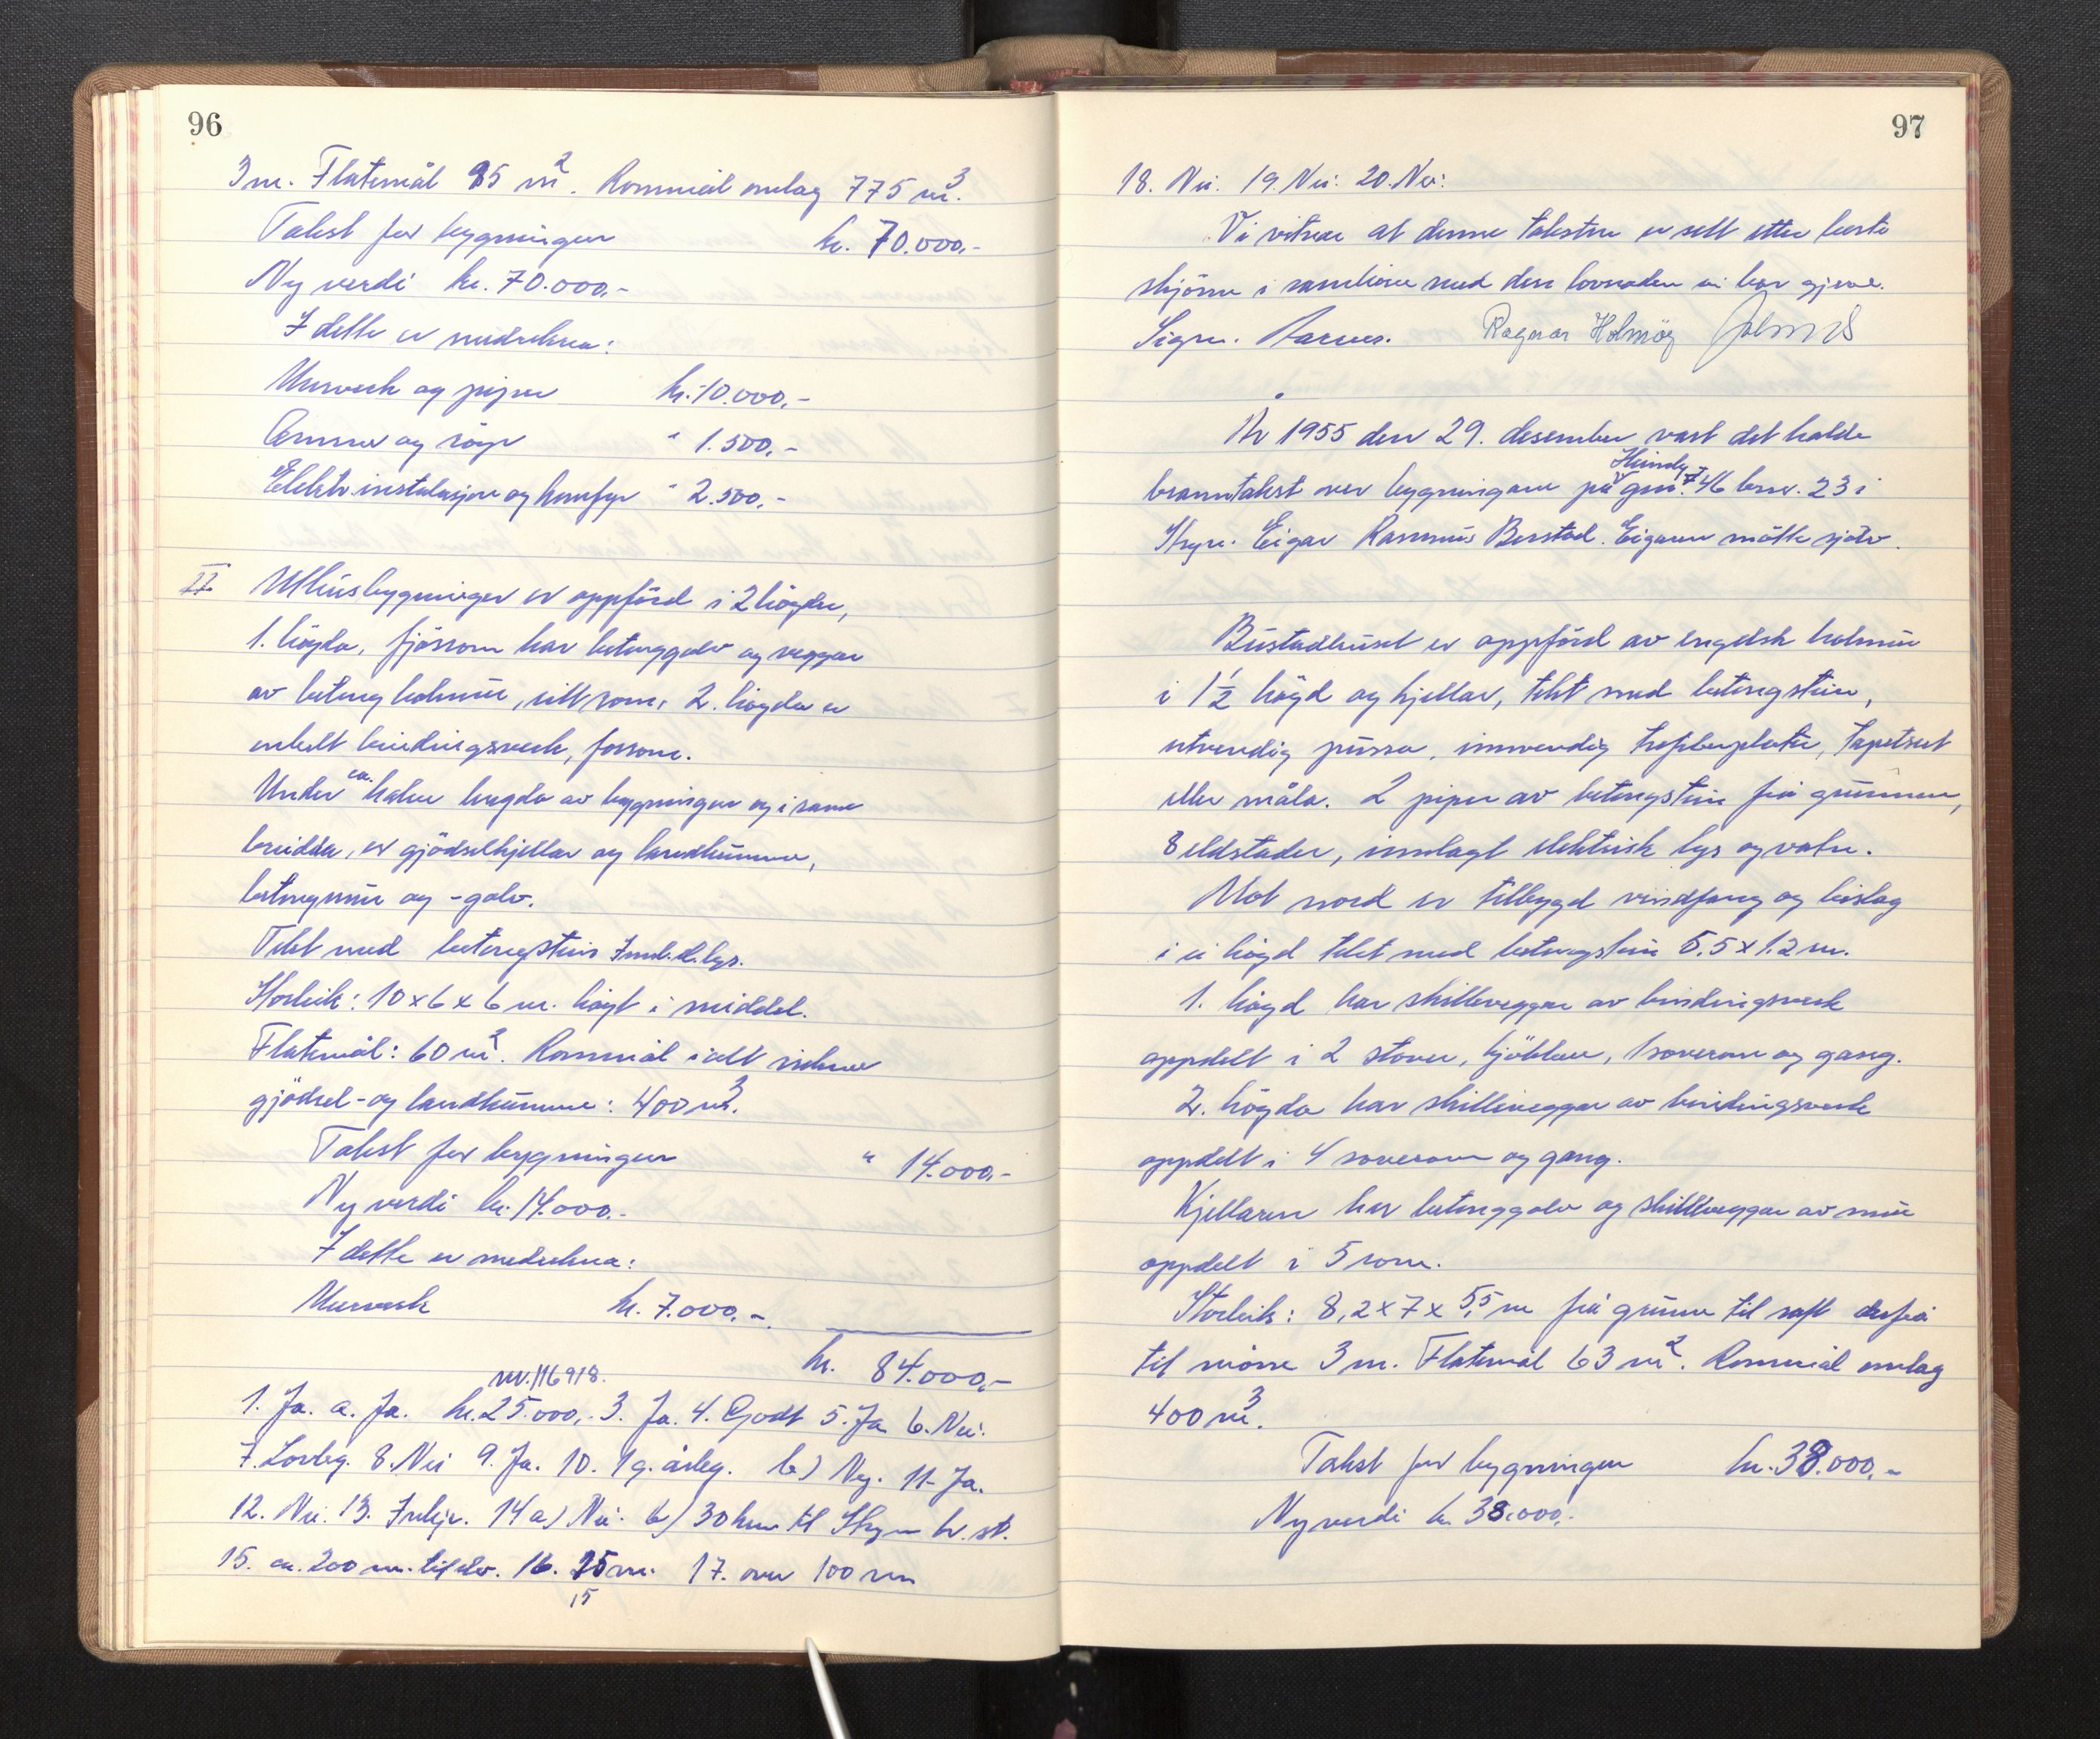 96
3 m. Flatemål 85 m². Rommål omlag 775 m³.
Takst for bygningen kr. 70.000,-
Ny verdi kr. 70.000,-
I dette er medrekna:
Murverk og piper kr. 10.000,-
Omnar og rör " 1.500,-
Elektr. instalasjon og komfyr " 2.500,-
II Uthusbygningen er oppförd i 2 högder,
1. högda, fjösrom har betonggolv og veggar
av betong holmur, eitt rom, 2. högda er
enkelt bindingsverk, forrom.
Under ca. halve lengda av bygningen og i same
breidda, er gjödselkjellar og landkumme,
betongmur og -golv.
Tekt med betongstein Innl. el. lys.
Storleik: 10 x 6 x 6 m. högt i middel.
Flatemål: 60 m². Rommål i alt inklus.
gjödsel- og landkumme: 400 m³.
Takst for bygningen " 14.000,-
Ny verdi kr. 14.000,-
I dette er medrekna:
Murverk kr. 7.000,-
kr. 84.000,-
nr. 116918.
1. Ja. a. Ja. kr. 25.000,- 3. Ja. 4. Godt 5. Ja 6. Nei.
7. Lovleg. 8. Nei 9. Ja. 10. 1 g. årleg. b) Nei. 11. Ja.
12. Nei. 13. Innkjr. 14 a) Nei. b) 30 km til Stryn br. st.
15. ca. 200 m. til elv. 16. 15 m. 17. over 100 m
15
97
18. Nei. 19. Nei. 20. Nei.
Vi vitnar at denne taksten er sett etter beste
skjönn i samhöve med den lovnaden vi har gjeve.
Sign. Aarnes. Ragnar Holmöy
År 1955 den 29. desember vart det halde
branntakst over bygningane på Heimly gnr. 46 bnr. 23 i
Stryn. Eigar Rasmus Berstad. Eigaren mötte sjölv.
Bustadhuset er oppförd av engelsk holmur
i 1½ högd og kjellar, tekt med betongstein,
utvendig pussa, innvendig trefiberplater, tapetsert
eller måla. 2 piper av betongstein frå grunnen,
8 eldstader, innlagt elektrisk lys og vatn.
Mot nord er tilbygd vindfang og bislag
i ei högd tekt med betongstein 5.5 x 1.2 m.
1. högd har skilleveggar av bindingsverk
oppdelt i 2 stover, kjökken, 1 soverom og gang.
2. högda har skilleveggar av bindingsverk
oppdelt i 4 soverom og gang.
Kjellaren har betonggolv og skilleveggar av mur
oppdelt i 5 rom.
Storleik: 8,2 x 7 x 5,5 m frå grunn til raft derfrå
til möne 3 m. Flatemål 63 m². Rommål omlag
400 m³.
Takst for bygningen kr. 38.000,-
Ny verdi kr. 38.000,-